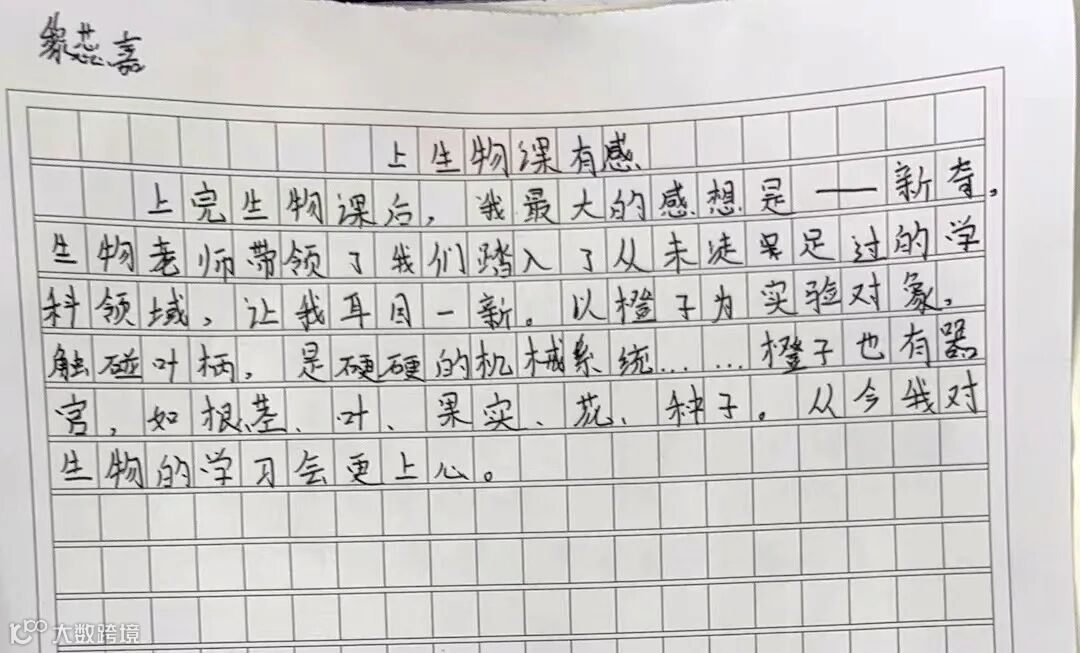 蕊嘉
上生物课有感
上完生物课后，我最大的感想是——新奇，
生物老师带领了我们踏入了从未徒足过的学
科领域，让我耳目一新。以橙子为实验对象，
触碰叶柄，是硬硬的机械系统……橙子也有器
官，如根、茎、叶、果实、花、种子。从今我对
生物的学习会更上心。
大数跨境